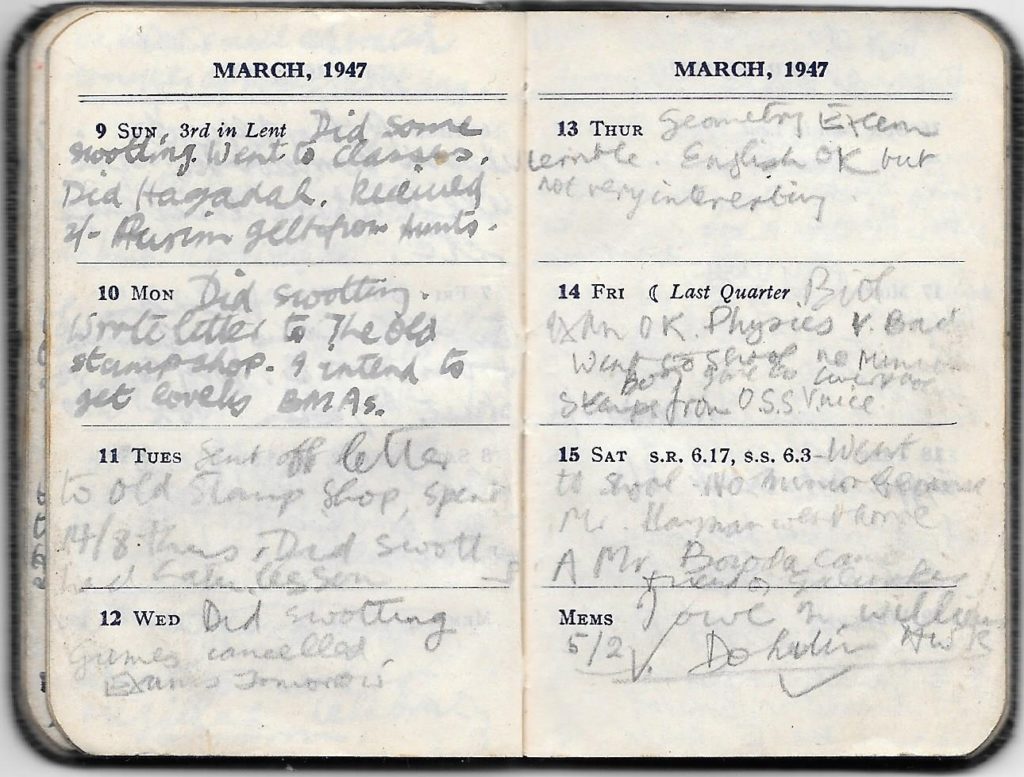 MARCH, 1947
9 SUN, 3rd in Lent Did some
swotting. Went to classes.
Did Hagadah. Received
2/- Purim gelt from Aunts.
10 MON Did swotting.
Wrote letter to The old
stamp shop. I intend to
get lovely BMAs.
11 TUES Sent off letter
to old Stamp Shop, spent
14/8 there. Did swott
had lesson
12 WED Did swotting
Games cancelled.
Exams Tomorrow
MARCH, 1947
13 THUR Geometry Exam
terrible. English OK but
not very interesting
14 FRI ☾ Last Quarter Biol
Exm OK. Physics V. Bad
Went to Shool no Minion
Stamps from O.S.S V.nice.
15 SAT S.R. 6.17, S.S. 6.3 Went
to shool No minion because
Mr. Hayman went home
A Mr. came
MEMS I owe N. William
5/2 Do HWK